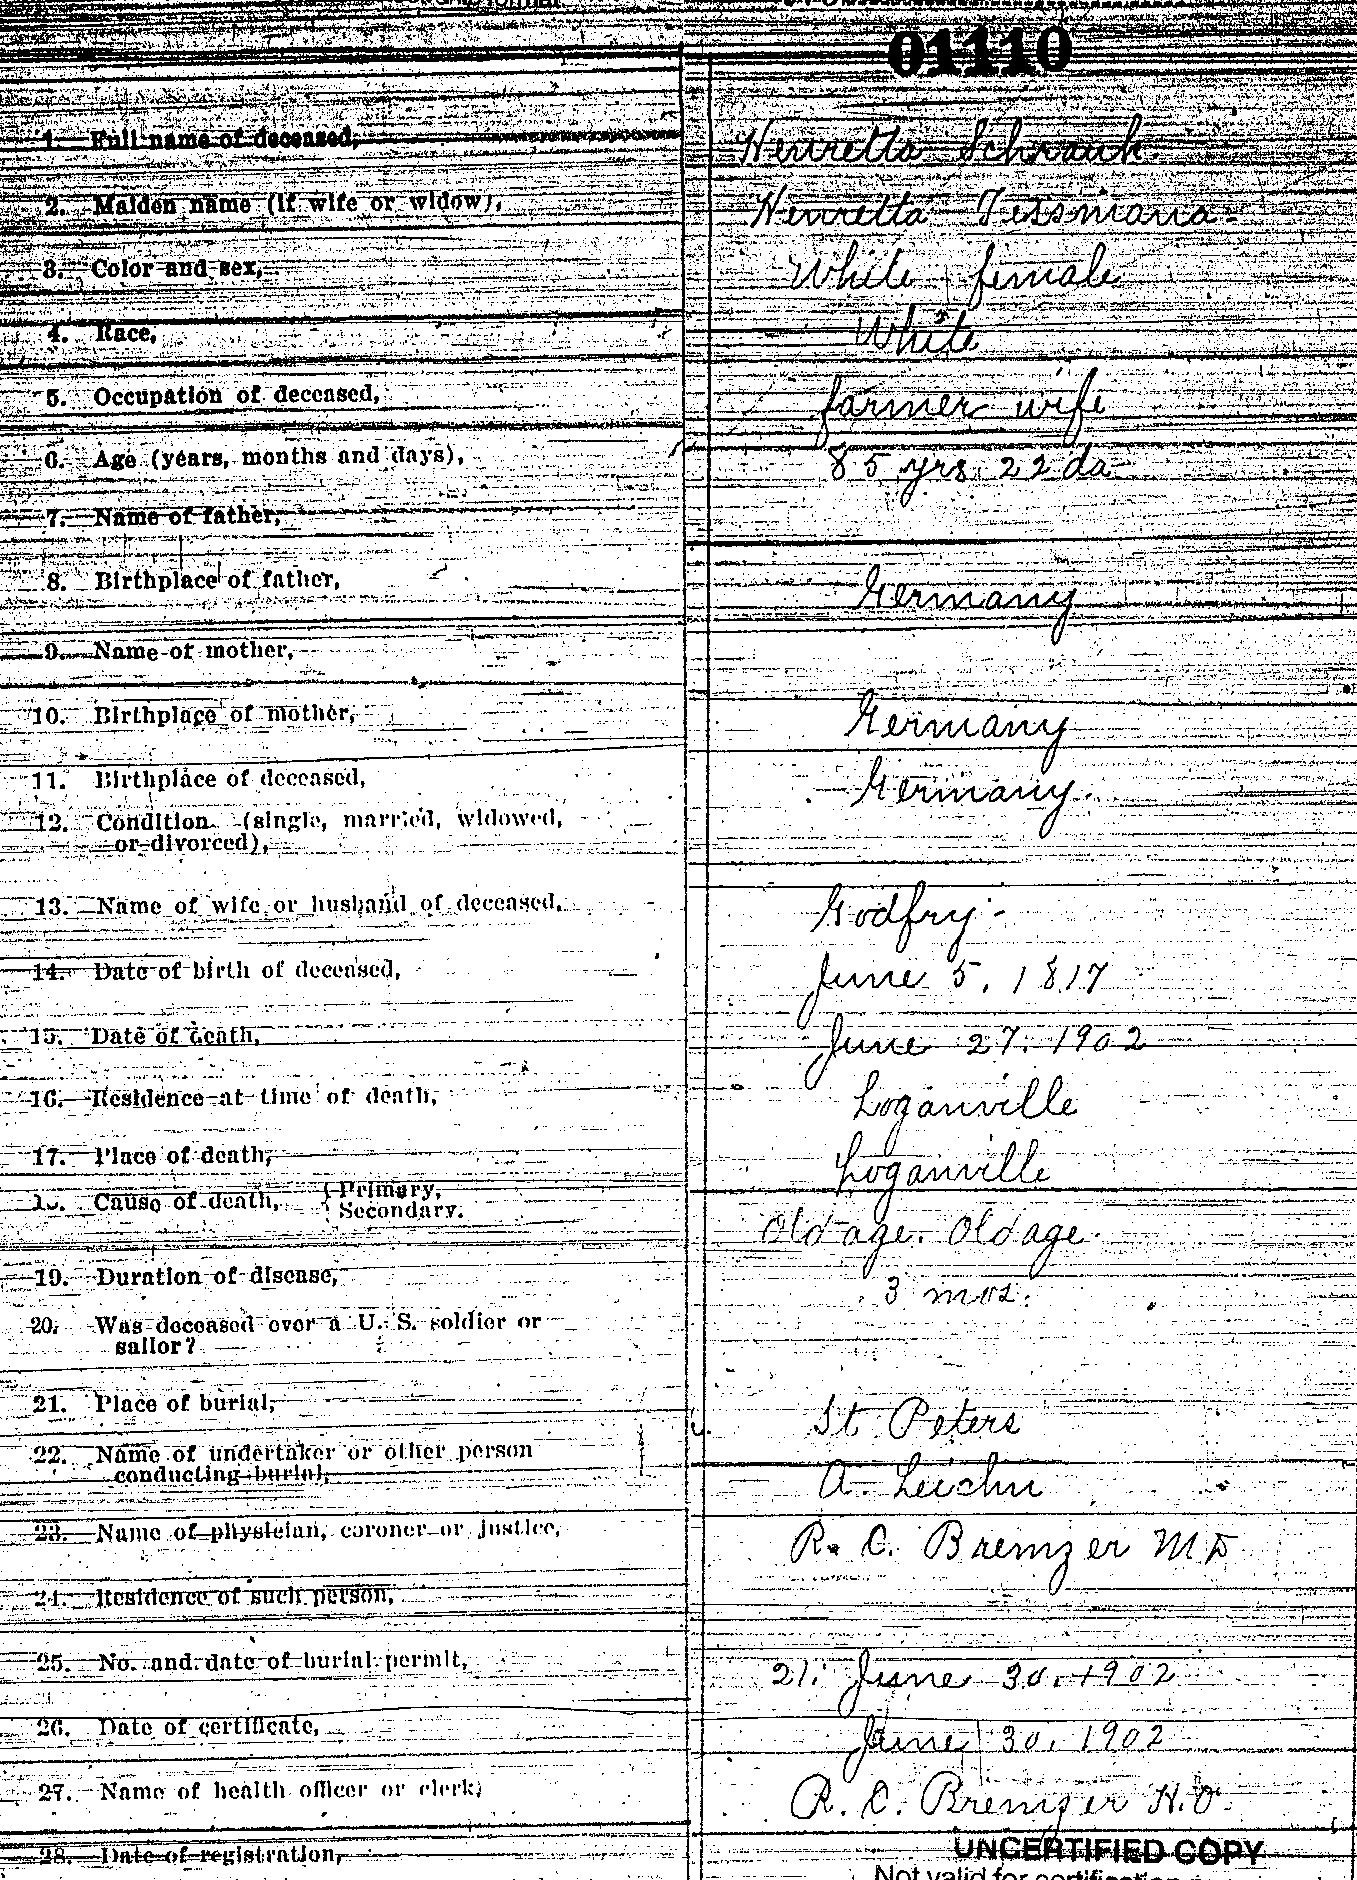 01110
1. Full name of deceased, Henretta Schrauk.
2. Maiden name (if wife or widow), Henretta Tessmana
3. Color and sex, White female
4. Race, White
5. Occupation of deceased, farmer wife
6. Age (years, months and days), 85 yrs. 22 da
7. Name of father,
8. Birthplace of father, Germany
9. Name of mother,
10. Birthplace of mother, Germany
11. Birthplace of deceased, Germany.
12. Condition (single, married, widowed,
or divorced),
13. Name of wife or husband of deceased, Godfry
14. Date of birth of deceased, June 5, 1817
15. Date of death, June 27. 1902
16. Residence at time of death, Loganville
17. Place of death, Loganville
Cause of death, { Primary,
Secondary. Old age. Old age.
19. Duration of disease, 3 mos.
20. Was deceased ever a U. S. soldier or
sailor?
21. Place of burial, St Peters
22. Name of undertaker or other person
conducting burial, A.
23. Name of physician, coroner or justice, R. C. Bremzer MD
24. Residence of such person,
25. No. and date of burial permit, 21. June 30. 1902
26. Date of certificate, June 30. 1902
27. Name of health officer or clerk, R. C. Bremzer H.O.
28. Date of registration,
UNCERTIFIED COPY
Not valid for